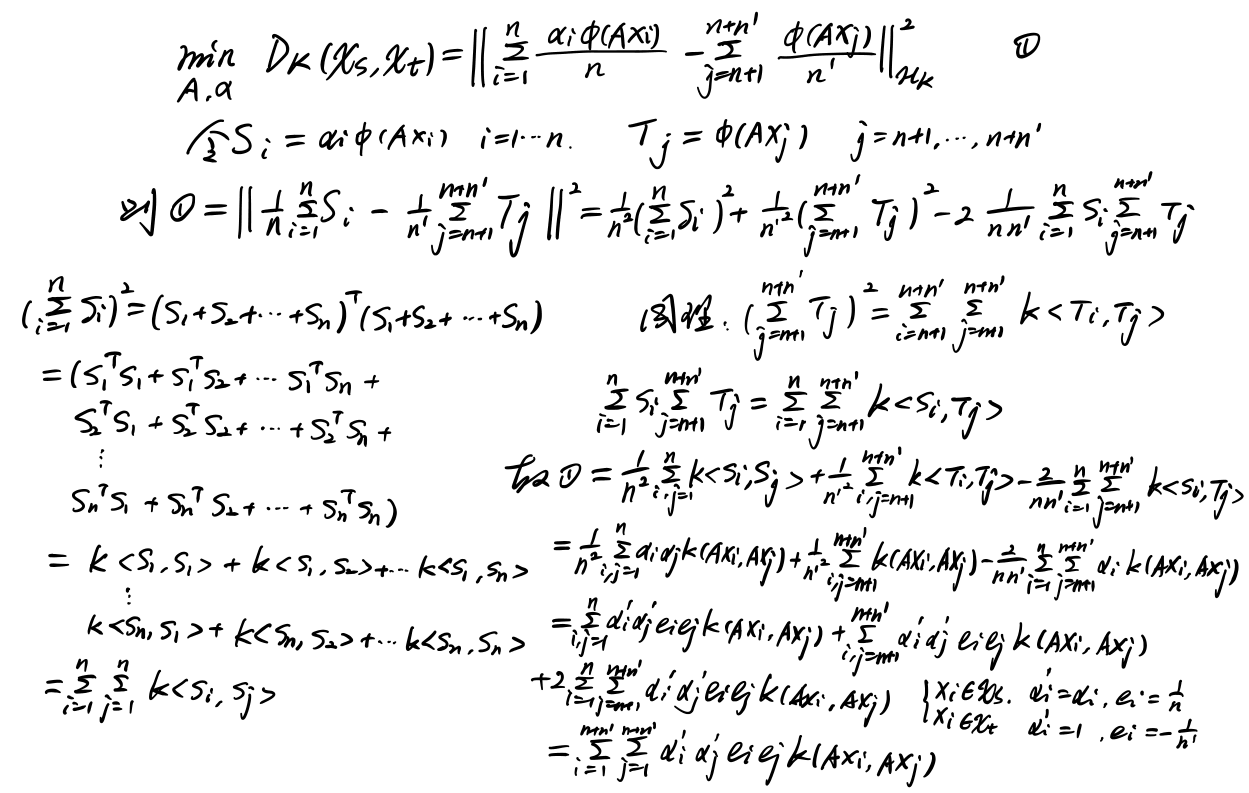 min_{A,α} D_K(X_s, X_t) = || Σ_{i=1}^{n} α_i φ(Ax_i)/n − Σ_{j=n+1}^{n+n'} φ(Ax_j)/n' ||²_{H_K} ①
令 S_i = α_i φ(Ax_i) i=1⋯n. T_j = φ(Ax_j) j=n+1,⋯,n+n'
则 ① = || 1/n Σ_{i=1}^{n} S_i − 1/n' Σ_{j=n+1}^{n+n'} T_j ||² = 1/n² (Σ_{i=1}^{n} S_i)² + 1/n'² (Σ_{j=n+1}^{n+n'} T_j)² − 2 1/(nn') Σ_{i=1}^{n} S_i Σ_{j=n+1}^{n+n'} T_j
(Σ_{i=1}^{n} S_i)² = (S_1+S_2+⋯+S_n)^T (S_1+S_2+⋯+S_n)
= (S_1^T S_1 + S_1^T S_2 + ⋯ S_1^T S_n +
S_2^T S_1 + S_2^T S_2 + ⋯ + S_2^T S_n +
⋮
S_n^T S_1 + S_n^T S_2 + ⋯ + S_n^T S_n)
= k<S_1, S_1> + k<S_1, S_2> + ⋯ k<S_1, S_n>
⋮
k<S_n, S_1> + k<S_n, S_2> + ⋯ k<S_n, S_n>
= Σ_{i=1}^{n} Σ_{j=1}^{n} k<S_i, S_j>
同理. (Σ_{j=n+1}^{n+n'} T_j)² = Σ_{i=n+1}^{n+n'} Σ_{j=n+1}^{n+n'} k<T_i, T_j>
Σ_{i=1}^{n} S_i Σ_{j=n+1}^{n+n'} T_j = Σ_{i=1}^{n} Σ_{j=n+1}^{n+n'} k<S_i, T_j>
故 ① = 1/n² Σ_{i,j=1}^{n} k<S_i, S_j> + 1/n'² Σ_{i,j=n+1}^{n+n'} k<T_i, T_j> − 2/(nn') Σ_{i=1}^{n} Σ_{j=n+1}^{n+n'} k<S_i, T_j>
= 1/n² Σ_{i,j=1}^{n} α_i α_j k(Ax_i, Ax_j) + 1/n'² Σ_{i,j=n+1}^{n+n'} k(Ax_i, Ax_j) − 2/(nn') Σ_{i=1}^{n} Σ_{j=n+1}^{n+n'} α_i k(Ax_i, Ax_j)
= Σ_{i,j=1}^{n} α_i' α_j' e_i e_j k(Ax_i, Ax_j) + Σ_{i,j=n+1}^{n+n'} α_i' α_j' e_i e_j k(Ax_i, Ax_j)
+ 2 Σ_{i=1}^{n} Σ_{j=n+1}^{n+n'} α_i' α_j' e_i e_j k(Ax_i, Ax_j) { x_i ∈ X_s. α_i' = α_i, e_i = 1/n
x_i ∈ X_t α_i' = 1, e_i = −1/n'
= Σ_{i=1}^{n+n'} Σ_{j=1}^{n+n'} α_i' α_j' e_i e_j k(Ax_i, Ax_j)